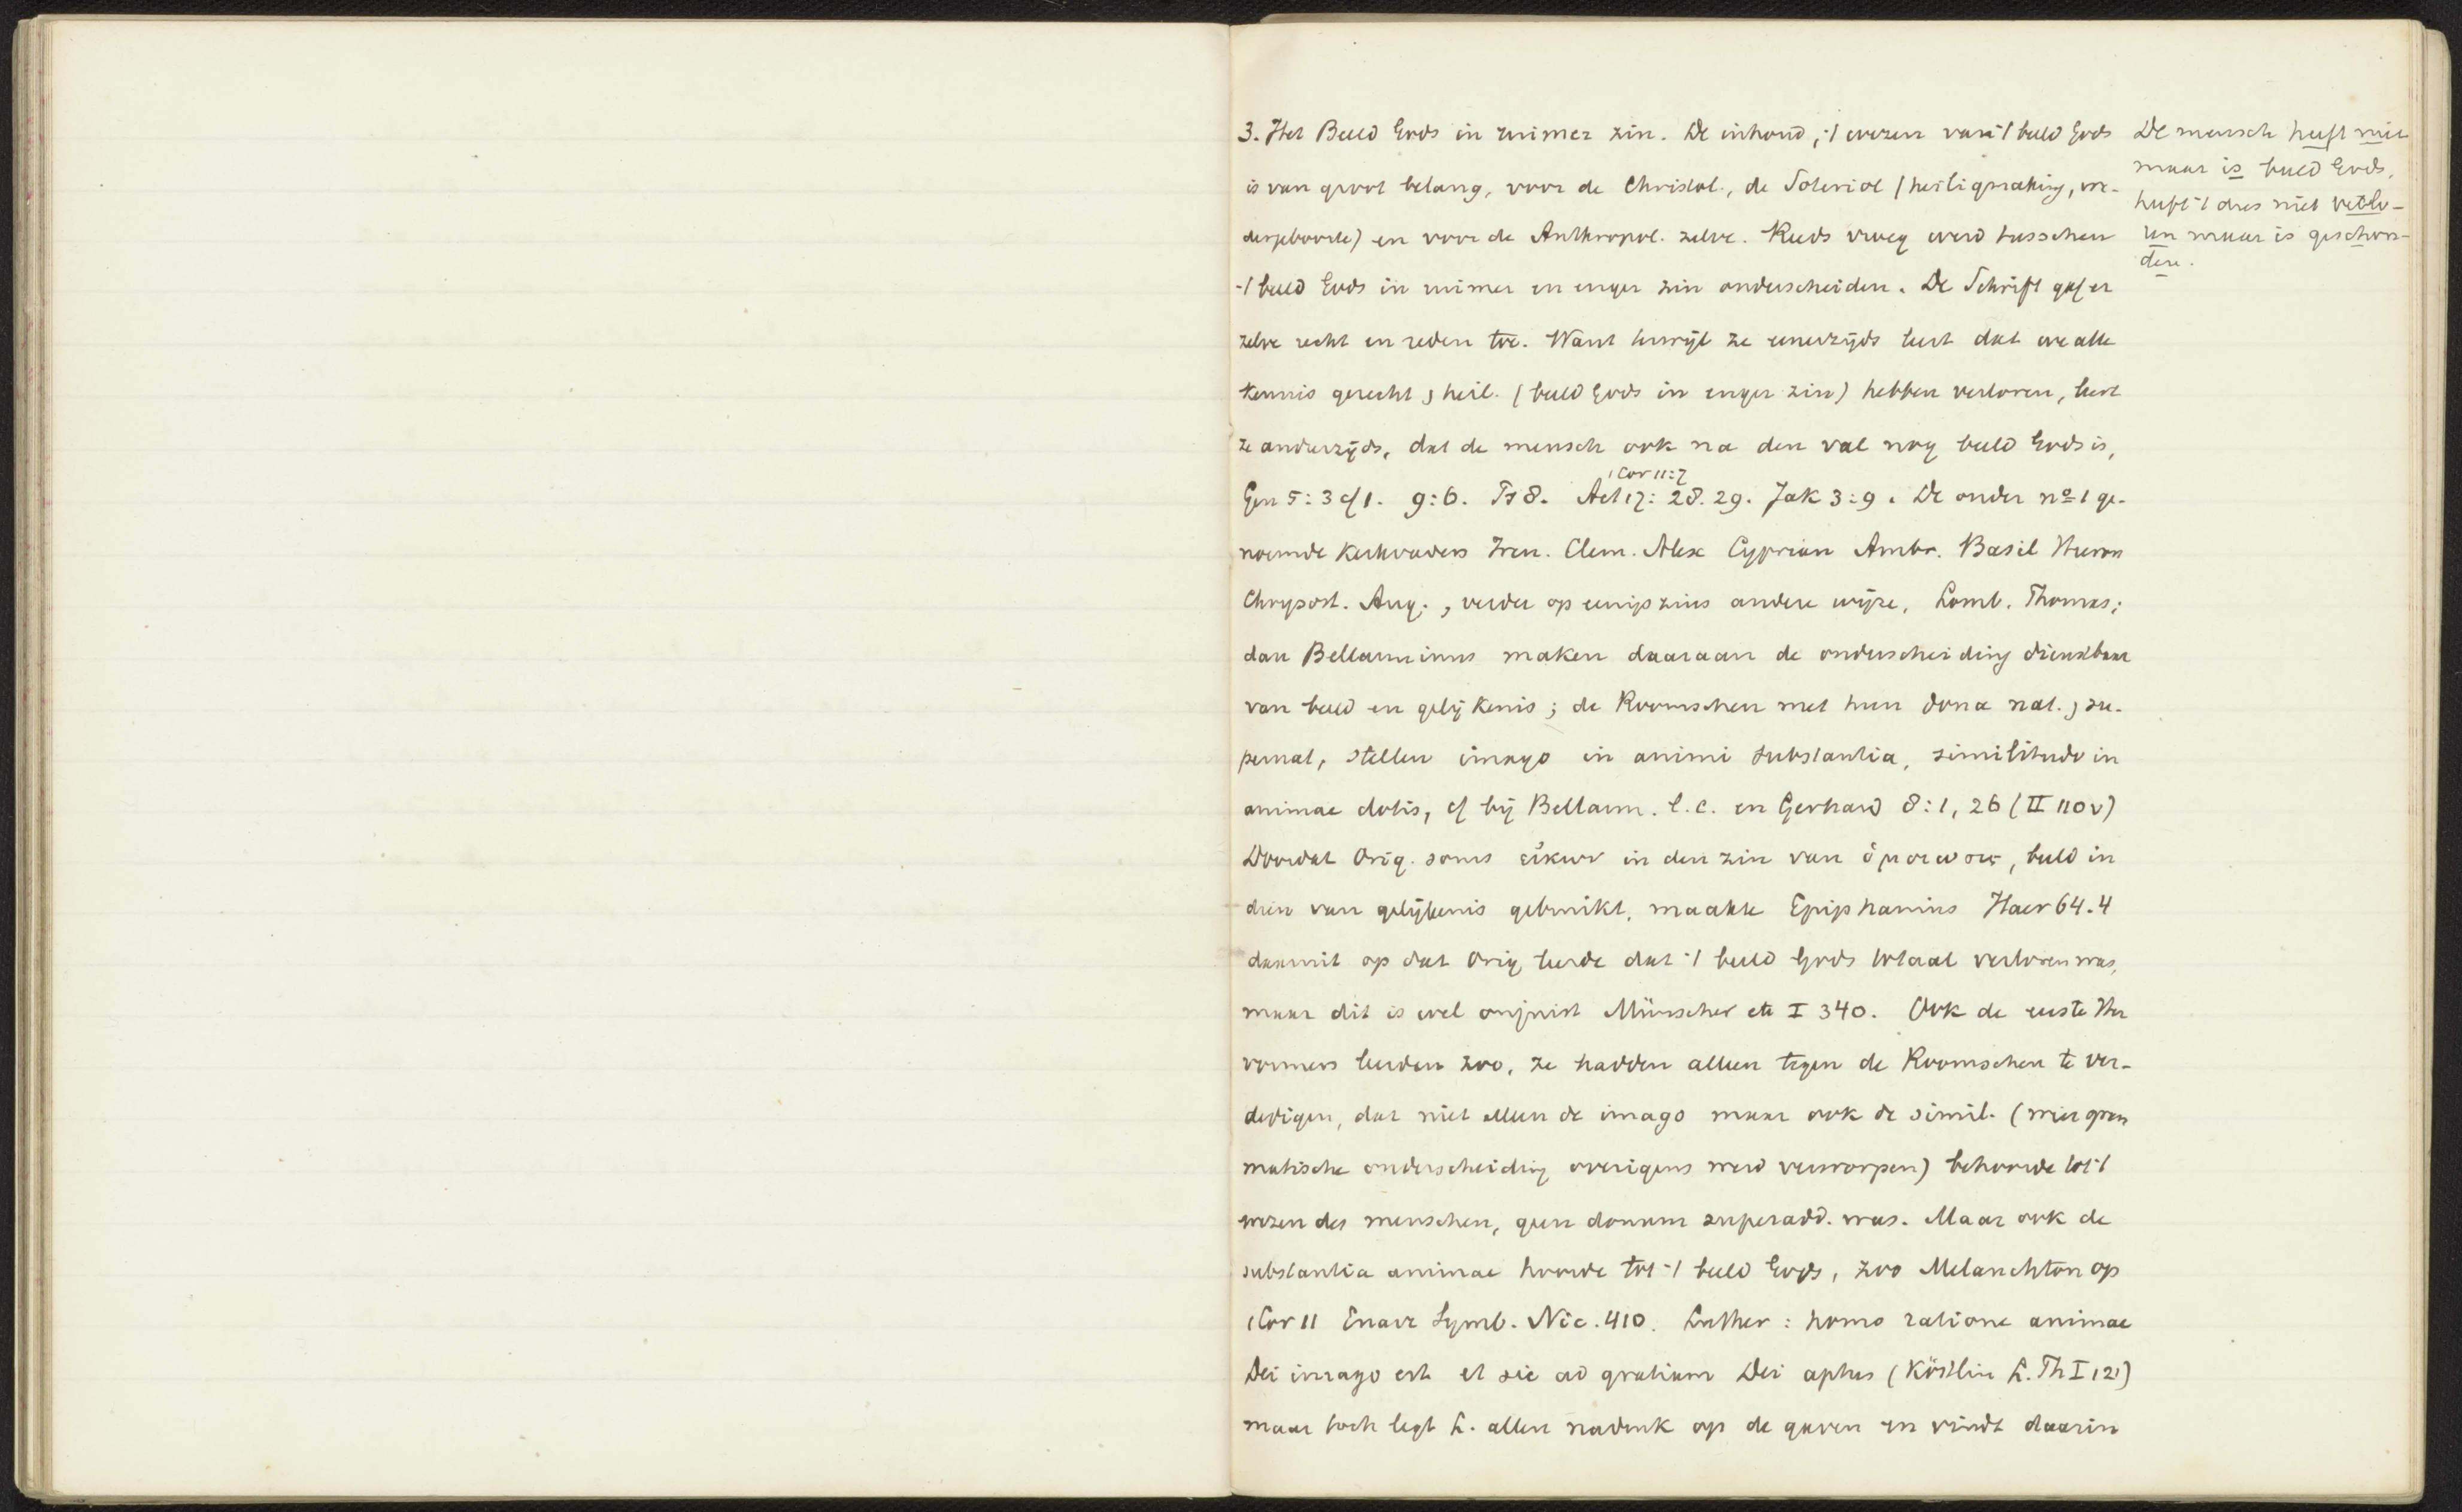 3. Het Beeld Gods in ruimer zin. De inhoud, 't wezen van 't beeld Gods
is van groot belang, voor de Christol., de Soteriol (heiligmaking, we-
dergeboorte) en voor de Anthropol. zelve. Reeds vroeg werd tusschen
't beeld Gods in ruimer en enger zin onderscheiden. De Schrift gaf er
zelve recht en reden toe. Want terwijl ze eenerzijds leert dat we alle
kennis gerecht, heil. (beeld Gods in enger zin) hebben verloren, leert
ze anderzijds, dat de mensch ook na den val nog beeld Gods is,
1 Cor 11:7
Gen 5:3 cf 1. 9:6. Ps 8. Act 17: 28. 29. Jak 3:9. De onder no 1 ge-
noemde kerkvaders Iren. Clem. Alex Cyprian Ambr. Basil Hieron
Chrysost. Aug., verder op eenigszins andere wijze, Lomb. Thomas;
dan Bellarminus maken daaraan de onderscheiding dienstbaar
van beeld en gelijkenis; de Roomschen met hun dona nat., su-
pernat, stellen imago in animi substantia, similitudo in
animae dotis, cf bij Bellarm. l.c. en Gerhard 8:1, 26 (II 110v)
Doordat Orig. soms εἰκων in den zin van ὁμοιωσις, beeld in
dien van gelijkenis gebruikt, maakte Epiphanius Haer 64.4
daaruit op dat Orig leerde dat 't beeld Gods totaal verloren was,
maar dit is wel onjuist Münscher etc I 340. Ook de eerste Her
vormers leerden zoo, ze hadden alleen tegen de Roomschen te ver-
dedigen, dat niet alleen de imago maar ook de simil. (wier gram
matische onderscheiding overigens werd verworpen) behoorde tot 't
wezen des menschen, geen donum superadd. was. Maar ook de
substantia animae hoorde tot 't beeld Gods, zoo Melanchton op
1 Cor 11 Enarr Symb. Nic. 410. Luther: homo ratione animae
Dei imago est et sic ad gratiam Dei aptus (Köstlin L. Th I 121)
maar toch legt L. allen nadruk op de gaven en vindt daarin
De mensch heeft niet
maar is beeld Gods,
heeft 't dus niet verlo-
ren maar is geschon-
den.